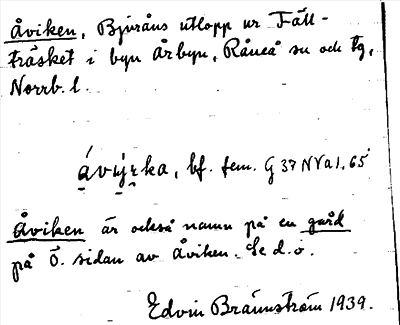 Åviken, Bjuråns utlopp ur Fäll-
träsket i byn Årbyn, Råneå sn och tg,
Norrb. l.
bf. fem. G 37 N Va 1, 65
Åviken är också namn på en gård
på Ö. sidan av Åviken. Se d. o.
Edvin Brännström 1939.